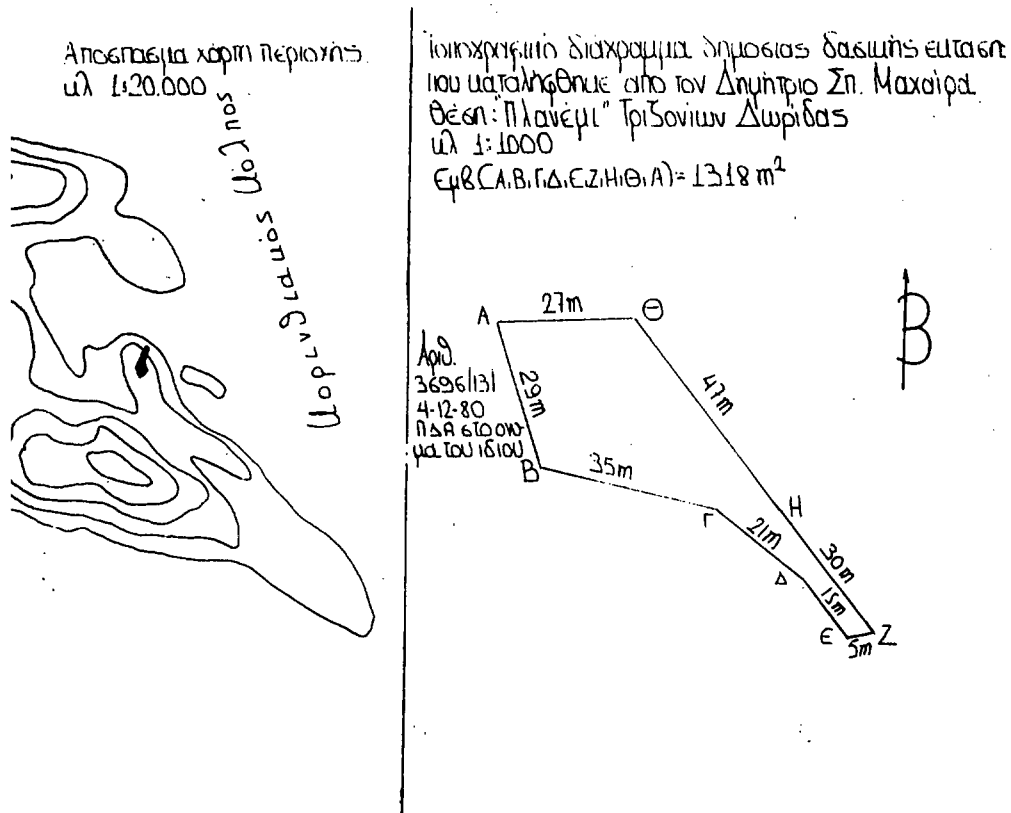 Αποσπασμα χάρτη περιοχής
κλ 1:20.000
Κορινθιακός Κόλπος
Τοπογραφικό διάγραμμα δημοσιας δασικής εκτασης
που καταλήφθηκε από τον Δημήτριο Σπ. Μαχαίρα
Θέση: "Πλανέμι" Τριζονίων Δωρίδας
κλ 1:1000
Εμβ(Α,Β,Γ,Δ,Ε,Ζ,Η,Θ,Α)=1318 m²
Α
27m
Θ
Β
Αριθ.
3696/131
4-12-80
ΠΔΑ στο ονο
μα του ιδίου
29m
47m
Β
35m
Γ
Η
21m
30m
Δ
15m
Ε
5m
Ζ